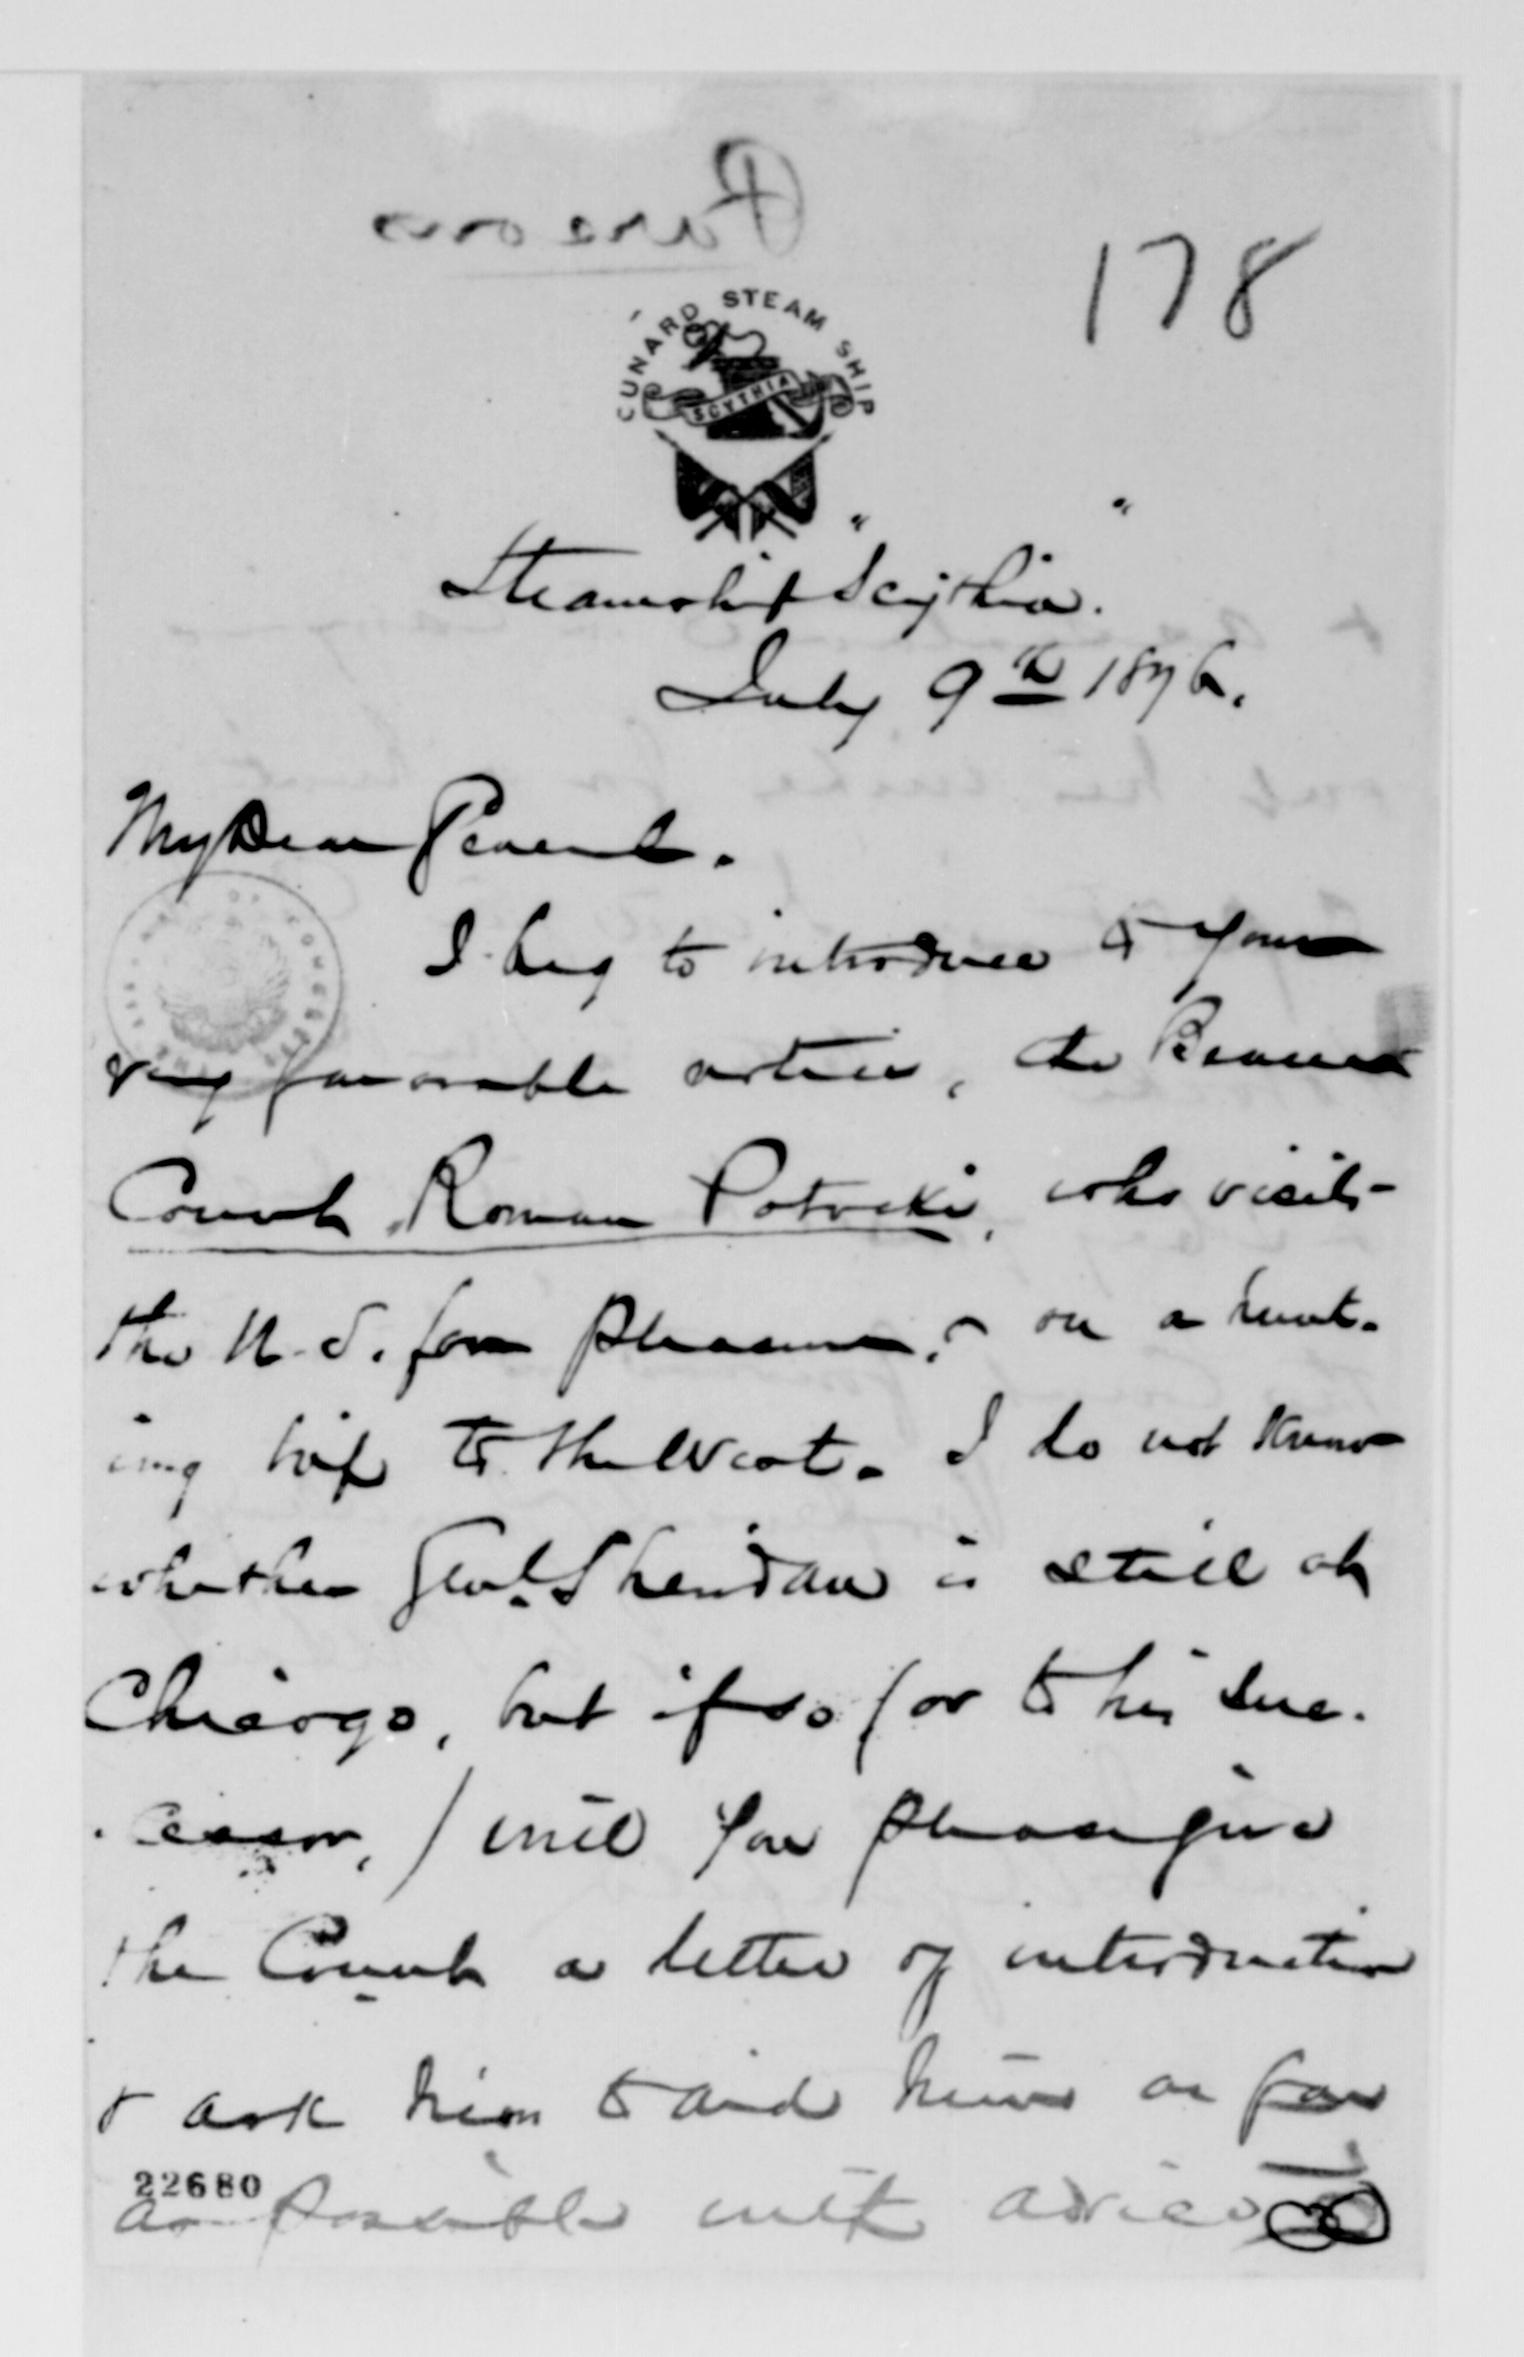 Parsons
178
CUNARD STEAM SHIP
SCYTHIA
Steamship "Scythia".
July 9th 1876.
My Dear General.
I beg to introduce to your
very favorable notice, the Bearer
Count Roman Potocki, who visits
the U.S. for pleasure, & on a hunt-
ing trip to the West. I do not know
whether Genl. Sheridan is still at
Chicago, but if so (or to his suc-
cessor,) will you please give
the Count a letter of introduction
& ask him to aid him as far
as possible with advice
22680